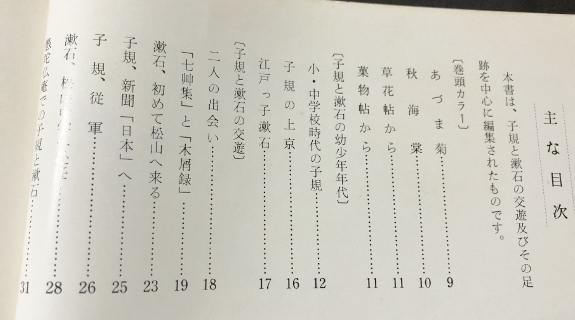 主な目次
本書は、子規と漱石の交遊及びその足
跡を中心に編集されたものです。
〔巻頭カラー〕
あづま菊……………9
秋海棠……………10
草花帖から……………11
菓物帖から……………11
〔子規と漱石の幼少年年代〕
小・中学校時代の子規……………12
子規の上京……………16
江戸っ子漱石……………17
〔子規と漱石の交遊〕
二人の出会い……………18
「七艸集」と「木屑録」……………19
漱石、初めて松山へ来る……………23
子規、新聞「日本」へ……………25
子規、従軍……………26
漱石、松山……………28
愚陀仏庵での子規と漱石……………31